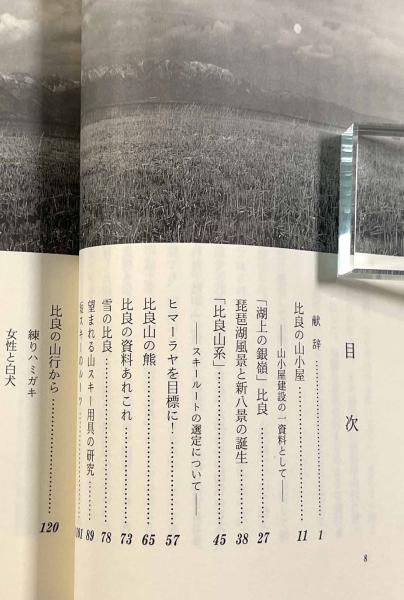 目次
献辞 1
比良の山小屋 11
――山小屋建設の一資料として――
「湖上の銀嶺」比良 27
琵琶湖風景と新八景の誕生 38
「比良山系」 45
――スキールートの選定について――
ヒマーラヤを目標に! 57
比良山の熊 65
比良の資料あれこれ 73
雪の比良 78
望まれる山スキー用具の研究 89
スキーのルーツ 101
比良の山行から 120
練りハミガキ
女性と白犬
8